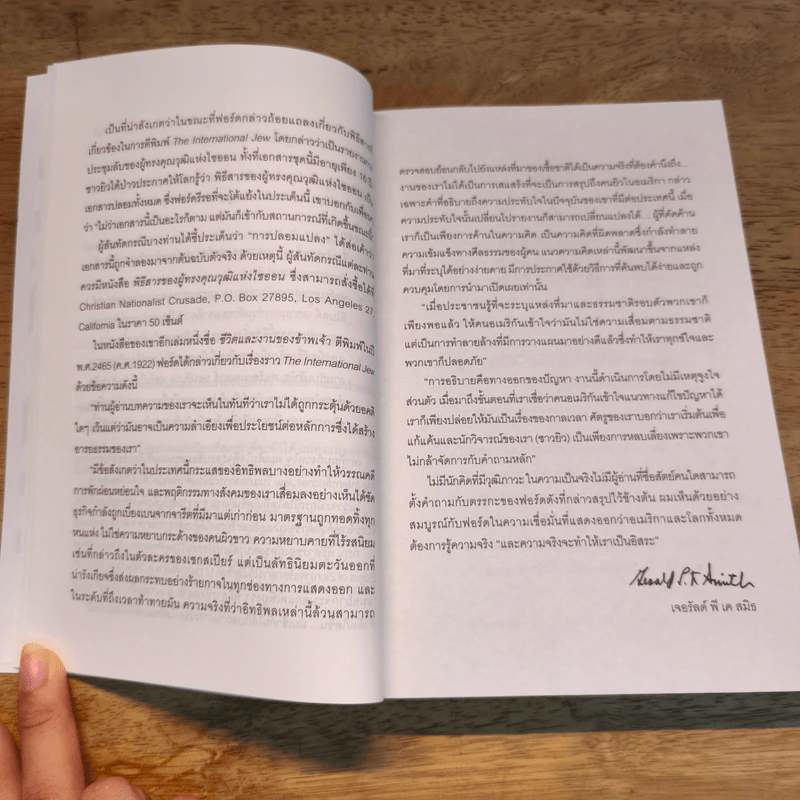 เป็นที่น่าสังเกตว่าในขณะที่ฟอร์ดกล่าวถ้อยแถลงเกี่ยวกับพิธีสาร
เกี่ยวข้องในการตีพิมพ์ The International Jew โดยกล่าวว่าเป็นรายงานการ
ประชุมลับของผู้ทรงคุณวุฒิแห่งไซออน ทั้งที่เอกสารชุดนี้มีอายุเพียง 16 ปี
ชาวยิวได้ป่าวประกาศให้โลกรู้ว่า พิธีสารของผู้ทรงคุณวุฒิแห่งไซออน เป็น
เอกสารปลอมทั้งหมด ซึ่งฟอร์ดรีรอที่จะโต้แย้งในประเด็นนี้ เขาบอกกับเพื่อน
ว่า “ไม่ว่าเอกสารนี้เป็นอะไรก็ตาม แต่มันก็เข้ากับสถานการณ์ที่เกิดขึ้นขณะนี้”
ผู้สันทัดกรณีบางท่านได้ชี้ประเด็นว่า “การปลอมแปลง” ได้ส่อเค้าว่า
เอกสารนี้ถูกจำลองมาจากต้นฉบับตัวจริง ด้วยเหตุนี้ ผู้สันทัดกรณีแต่ละท่าน
ควรมีหนังสือ พิธีสารของผู้ทรงคุณวุฒิแห่งไซออน ซึ่งสามารถสั่งซื้อได้ที่
Christian Nationalist Crusade, P.O. Box 27895, Los Angeles 27,
California ในราคา 50 เซ็นต์
ในหนังสือของเขาอีกเล่มหนึ่งชื่อ ชีวิตและงานของข้าพเจ้า ตีพิมพ์ในปี
พ.ศ.2465 (ค.ศ.1922) ฟอร์ดได้กล่าวเกี่ยวกับเรื่องราว The International Jew
ด้วยข้อความดังนี้
“ท่านผู้อ่านบทความของเราจะเห็นในทันทีว่าเราไม่ได้ถูกกระตุ้นด้วยอคติ
ใดๆ เว้นแต่ว่ามันอาจเป็นความลำเอียงเพื่อประโยชน์ต่อหลักการซึ่งได้สร้าง
อารยธรรมของเรา”
“มีข้อสังเกตว่าในประเทศนี้กระแสของอิทธิพลบางอย่างทำให้วรรณคดี
การพักผ่อนหย่อนใจ และพฤติกรรมทางสังคมของเราเสื่อมลงอย่างเห็นได้ชัด
ธุรกิจกำลังถูกเบี่ยงเบนจากจารีตที่มีมาแต่เก่าก่อน มาตรฐานถูกทอดทิ้งทุก
หนแห่ง ไม่ใช่ความหยาบกระด้างของคนผิวขาว ความหยาบคายที่ไร้รสนิยม
เช่นที่กล่าวถึงในตัวละครของเชกสเปียร์ แต่เป็นลัทธินิยมตะวันออกที่
น่ารังเกียจซึ่งส่งผลกระทบอย่างร้ายกาจในทุกช่องทางการแสดงออก และ
ในระดับที่ถึงเวลาท้าทายมัน ความจริงที่ว่าอิทธิพลเหล่านี้ล้วนสามารถ
ตรวจสอบย้อนกลับไปยังแหล่งที่มาของเชื้อชาติได้เป็นความจริงที่ต้องคำนึงถึง...
งานของเราไม่ได้เป็นการเสแสร้งที่จะเป็นการสรุปถึงคนยิวในอเมริกา กล่าว
เฉพาะคำที่อธิบายถึงความประทับใจในปัจจุบันของเขาที่มีต่อประเทศนี้ เมื่อ
ความประทับใจนั้นเปลี่ยนไปรายงานก็สามารถเปลี่ยนแปลงได้... ผู้ที่คัดค้าน
เราก็เป็นเพียงการค้านในความคิด เป็นความคิดที่ผิดพลาดซึ่งกำลังทำลาย
ความเข้มแข็งทางศีลธรรมของผู้คน แนวความคิดเหล่านี้พัฒนาขึ้นจากแหล่ง
ที่มาที่ระบุได้อย่างง่ายดาย มีการประกาศใช้ด้วยวิธีการที่ค้นพบได้ง่ายและถูก
ควบคุมโดยการนำมาเปิดเผยเท่านั้น
“เมื่อประชาชนรู้ที่จะระบุแหล่งที่มาและธรรมชาติรอบตัวพวกเขาก็
เพียงพอแล้ว ให้คนอเมริกันเข้าใจว่ามันไม่ใช่ความเสื่อมตามธรรมชาติ
แต่เป็นการทำลายล้างที่มีการวางแผนมาอย่างดีแล้วซึ่งทำให้เราทุกข์ใจและ
พวกเขาก็ปลอดภัย”
“การอธิบายคือทางออกของปัญหา งานนี้ดำเนินการโดยไม่มีเหตุจูงใจ
ส่วนตัว เมื่อมาถึงขั้นตอนที่เราเชื่อว่าคนอเมริกันเข้าใจแนวทางแก้ไขปัญหาได้
เราก็เพียงปล่อยให้มันเป็นเรื่องของกาลเวลา ศัตรูของเราบอกว่าเราเริ่มต้นเพื่อ
แก้แค้นและนักวิจารณ์ของเรา (ชาวยิว) เป็นเพียงการหลบเลี่ยงเพราะพวกเขา
ไม่กล้าจัดการกับคำถามหลัก”
ไม่มีนักคิดที่มีวุฒิภาวะ ในความเป็นจริงไม่มีผู้อ่านที่ซื่อสัตย์คนใดสามารถ
ตั้งคำถามกับตรรกะของฟอร์ดดังที่กล่าวสรุปไว้ข้างต้น ผมเห็นด้วยอย่าง
สมบูรณ์กับฟอร์ดในความเชื่อมั่นที่แสดงออกว่าอเมริกาและโลกทั้งหมด
ต้องการรู้ความจริง “และความจริงจะทำให้เราเป็นอิสระ”
Gerald L. K. Smith
เจอรัลด์ พี เค สมิธ